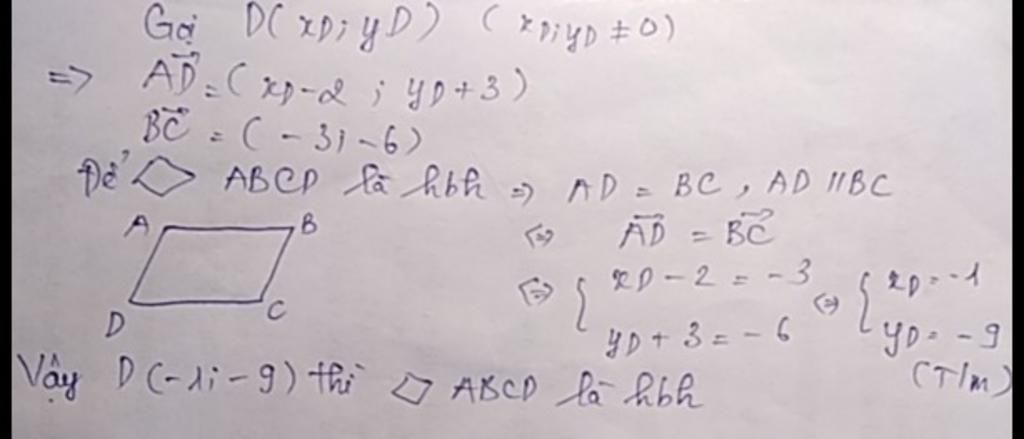 Gọi D(xD; yD) (xD; yD ≠ 0)
=> \overrightarrow{AD} = (xD - 2 ; yD + 3)
\overrightarrow{BC} = (-3; -6)
Để ▱ ABCD là hbh => AD = BC, AD // BC
A B
<=> \overrightarrow{AD} = \overrightarrow{BC}
<=> { xD - 2 = -3 <=> { xD = -1
yD + 3 = -6 yD = -9
D C
(T/m)
Vậy D(-1; -9) thì ▱ ABCD là hbh